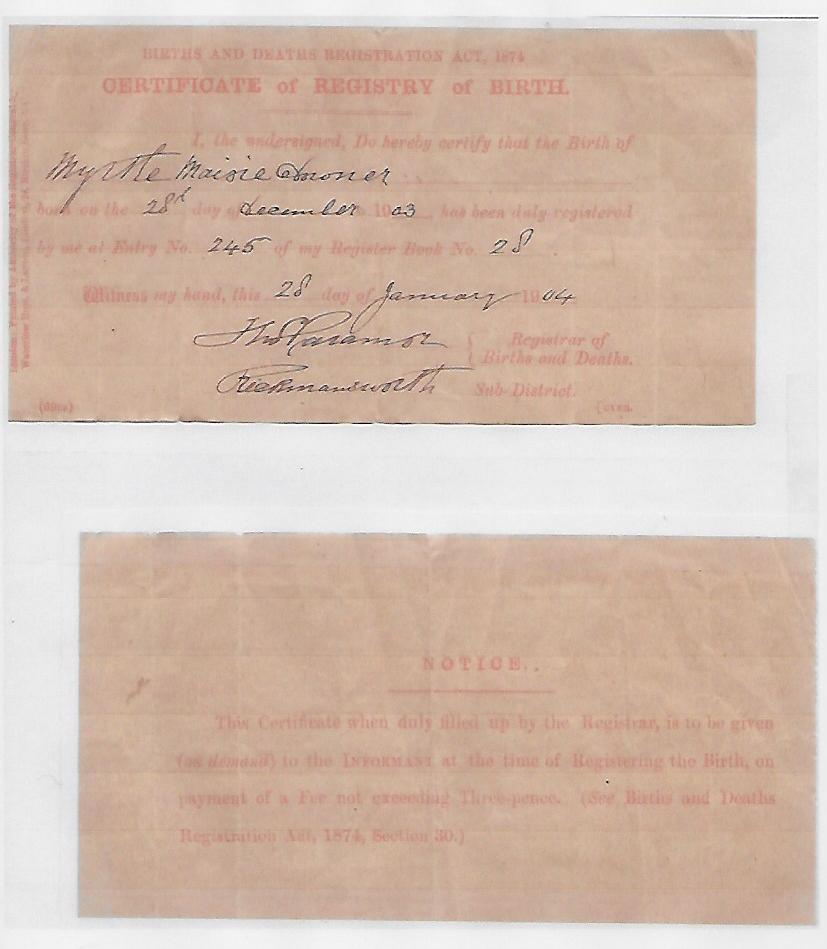 BIRTHS AND DEATHS REGISTRATION ACT, 1874
CERTIFICATE of REGISTRY of BIRTH.
I, the undersigned, Do hereby certify that the Birth of
Myrtle Maisie
born on the 28th day of December 1903 has been duly registered
by me at Entry No. 245 of my Register Book No. 28
Witness my hand, this 28 day of January 1904
Registrar of
Births and Deaths.
Rickmansworth Sub-District.
(OVER.
NOTICE.
This Certificate when duly filled up by the Registrar, is to be given
(on demand) to the INFORMANT at the time of Registering the Birth, on
payment of a Fee not exceeding Three-pence. (See Births and Deaths
Registration Act, 1874, Section 30.)